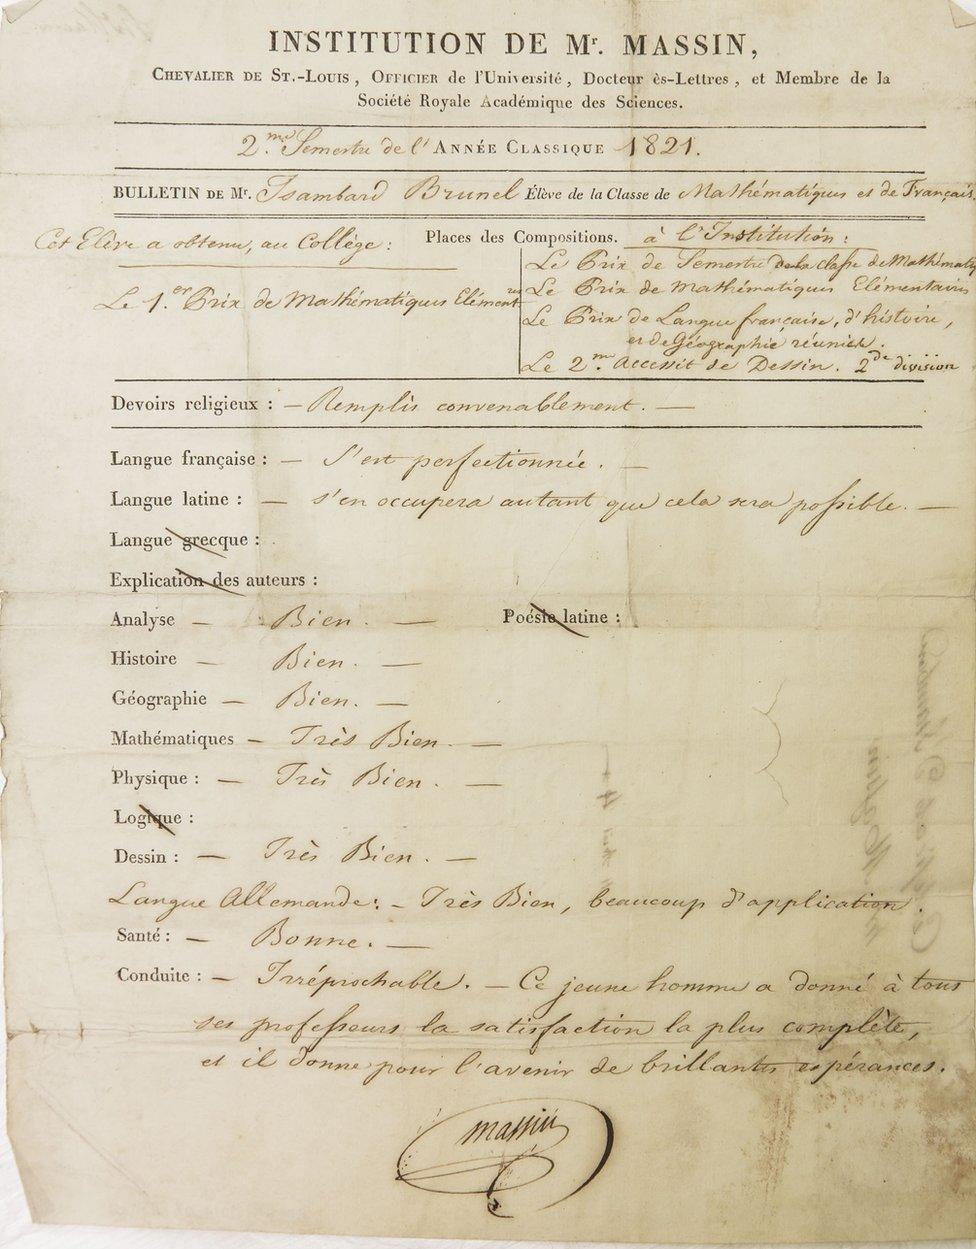 INSTITUTION DE Mr. MASSIN,
CHEVALIER DE ST.-LOUIS, OFFICIER de l'Université, Docteur ès-Lettres, et Membre de la
Société Royale Académique des Sciences.
2.me Semestre de l'ANNÉE CLASSIQUE 1821.
BULLETIN DE Mr. Isambard Brunel Élève de la Classe de Mathématiques et de Français
Cet Elève a obtenu, au Collège : Places des Compositions. à l'Institution :
Le Prix de Semestre de la Classe de Mathémati
Le 1.er Prix de Mathématiques Elémentres Le Prix de Mathématiques Elémentaires
Le Prix de Langue française, d'histoire,
et de Géographie réunies.
Le 2.me Accessit de Dessin. 2de division
Devoirs religieux : — Remplis convenablement. —
Langue française : — S'est perfectionnée. —
Langue latine : — s'en occupera autant que cela sera possible. —
Langue grecque :
Explication des auteurs :
Analyse — Bien. — Poésie latine :
Histoire — Bien. —
Géographie — Bien. —
Mathématiques — Très Bien. —
Physique : — Très Bien. —
Logique :
Dessin : — Très Bien. —
Langue Allemande : — Très Bien, beaucoup d'application.
Santé : — Bonne. —
Conduite : — Irréprochable. — Ce jeune homme a donné à tous
ses professeurs la satisfaction la plus complète,
et il donne pour l'avenir de brillantes espérances.
Massin